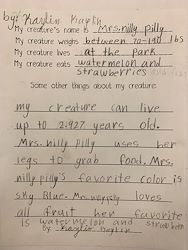 by: Kaylin Kaylin
My creature's name is Mrs. nilly pilly
My creature weighs between 70-140 lbs.
My creature lives at the park
My creature eats watermelon and
strawberries
Some other things about my creature.
my creature can live
up to 2,927 years old.
Mrs. nilly pilly uses her
legs to grab food. Mrs.
nilly pilly's favorite color is
sky Blue. Mrs. nilly pilly loves
all fruit her favorite
is watermelon and strawberri
by: Kaylin Kaylin